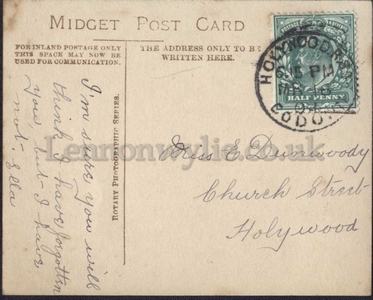 MIDGET POST CARD
FOR INLAND POSTAGE ONLY
THIS SPACE MAY NOW BE
USED FOR COMMUNICATION.
THE ADDRESS ONLY TO BE
WRITTEN HERE.
I'm sure you will
think I have forgotten
you, but I have
not. Ella
ROTARY PHOTOGRAPHIC SERIES.
HOLYWOOD
5 PM
CO DOWN
HALF PENNY
Miss E Dunwoody
Church Street
Holywood
Lennonwylie.co.uk